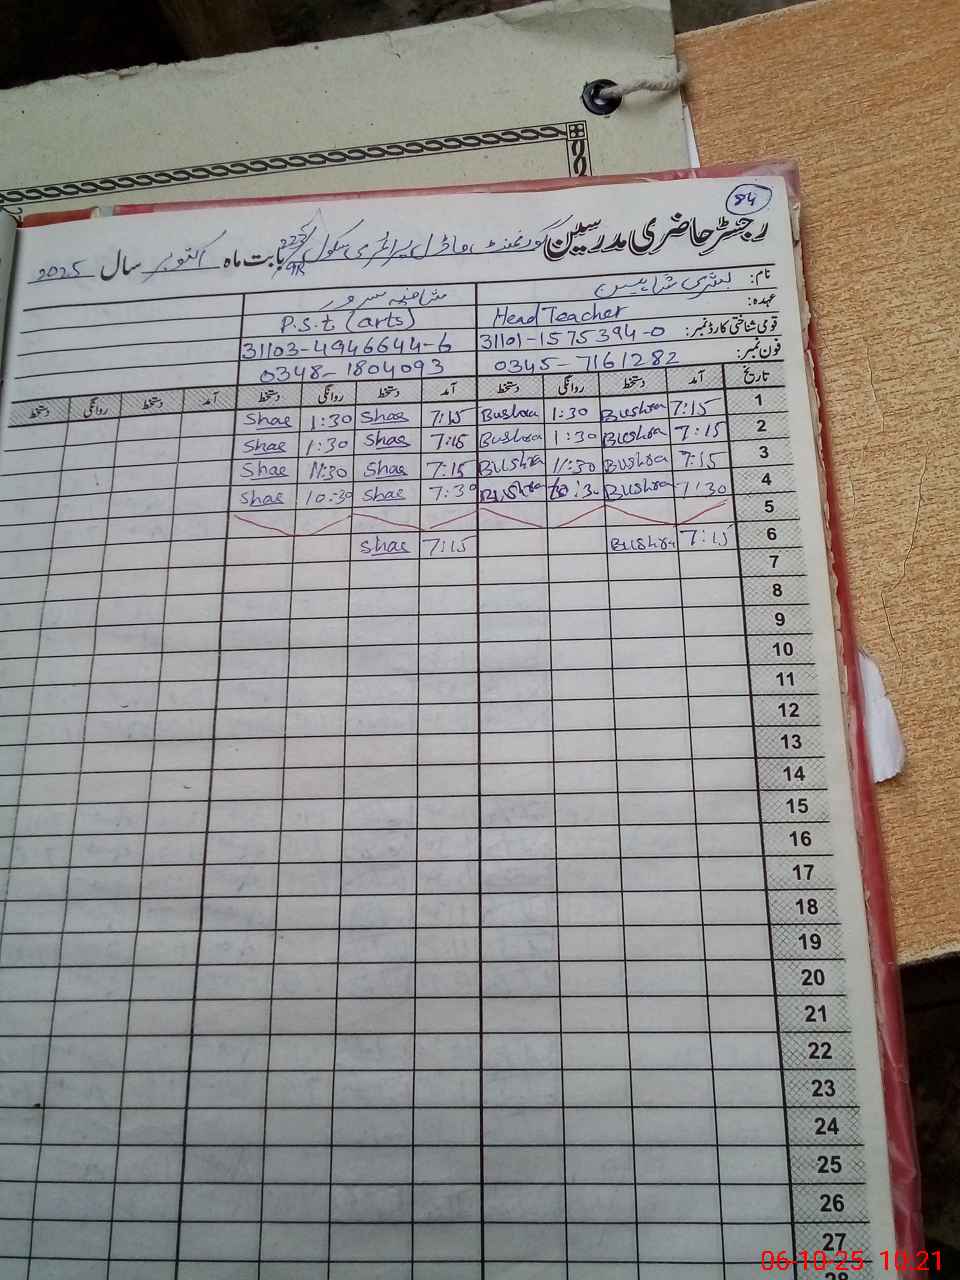 84
رجسٹر حاضری مدرسین گورنمنٹ ماڈل پرائمری سکول 223/9R بابت ماہ اکتوبر سال 2025
نام: بشری شاہین شافیہ سرور
عہدہ: Head Teacher P.s.t (arts)
قومی شناختی کارڈ نمبر: 31101-1575394-0 31103-4946644-6
فون نمبر: 0345-7161282 0348-1804093
تاریخ آمد دستخط روانگی دستخط آمد دستخط روانگی دستخط آمد دستخط روانگی دستخط
1 7:15 Bushra 1:30 Bushra 7:15 Shae 1:30 Shae
2 7:15 Bushra 1:30 Bushra 7:15 Shae 1:30 Shae
3 7:15 Bushra 11:30 Bushra 7:15 Shae 11:30 Shae
4 7:30 Bushra 10:30 Bushra 7:30 Shae 10:30 Shae
5
6 7:15 Bushra 7:15 Shae
7
8
9
10
11
12
13
14
15
16
17
18
19
20
21
22
23
24
25
26
27
28
06-10-25 10:21